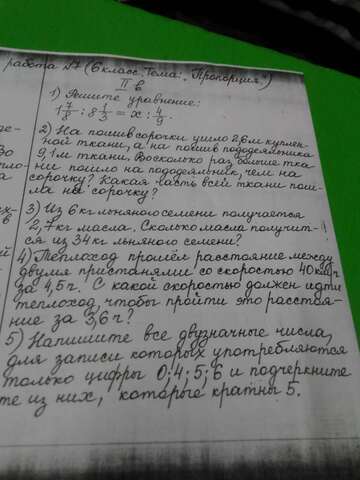 работа №7 (6 класс. Тема: „Пропорция")
II в
1) Решите уравнение:
1 7/8 : 8 1/3 = x : 4/9.
2) На пошив сорочки ушло 2,6 м куплен-
ной ткани, а на пошив пододеяльника
9,1 м ткани. Во сколько раз больше тка-
ни пошло на пододеяльник, чем на
сорочку? Какая часть всей ткани пош-
ла на сорочку?
3) Из 6 кг льняного семени получается
2,7 кг масла. Сколько масла получит-
ся из 34 кг льняного семени?
4) Теплоход прошёл расстояние между
двумя пристанями со скоростью 40 км/ч
за 4,5 г. С какой скоростью должен идти
теплоход, чтобы пройти это расстоя-
ние за 3,6 г?
5) Напишите все двузначные числа,
для записи которых употребляются
только цифры 0; 4; 5; 6 и подчеркните
те из них, которые кратны 5.